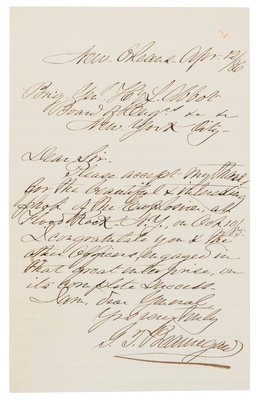 New Orleans Apr. 12/86
Brig. Gnl H. L. Abbot
Board of Engrs &c &c
New York City—
Dear Sir:
Please accept my thanks
for the beautiful & interesting
photo of the Explosion, at
Flood Rock, N.Y., on Oct.
I congratulate you & the
other Officers, engaged in
that great enterprise, on
its complete success.
I am, dear General
Yrs very truly
G. T. Beauregard